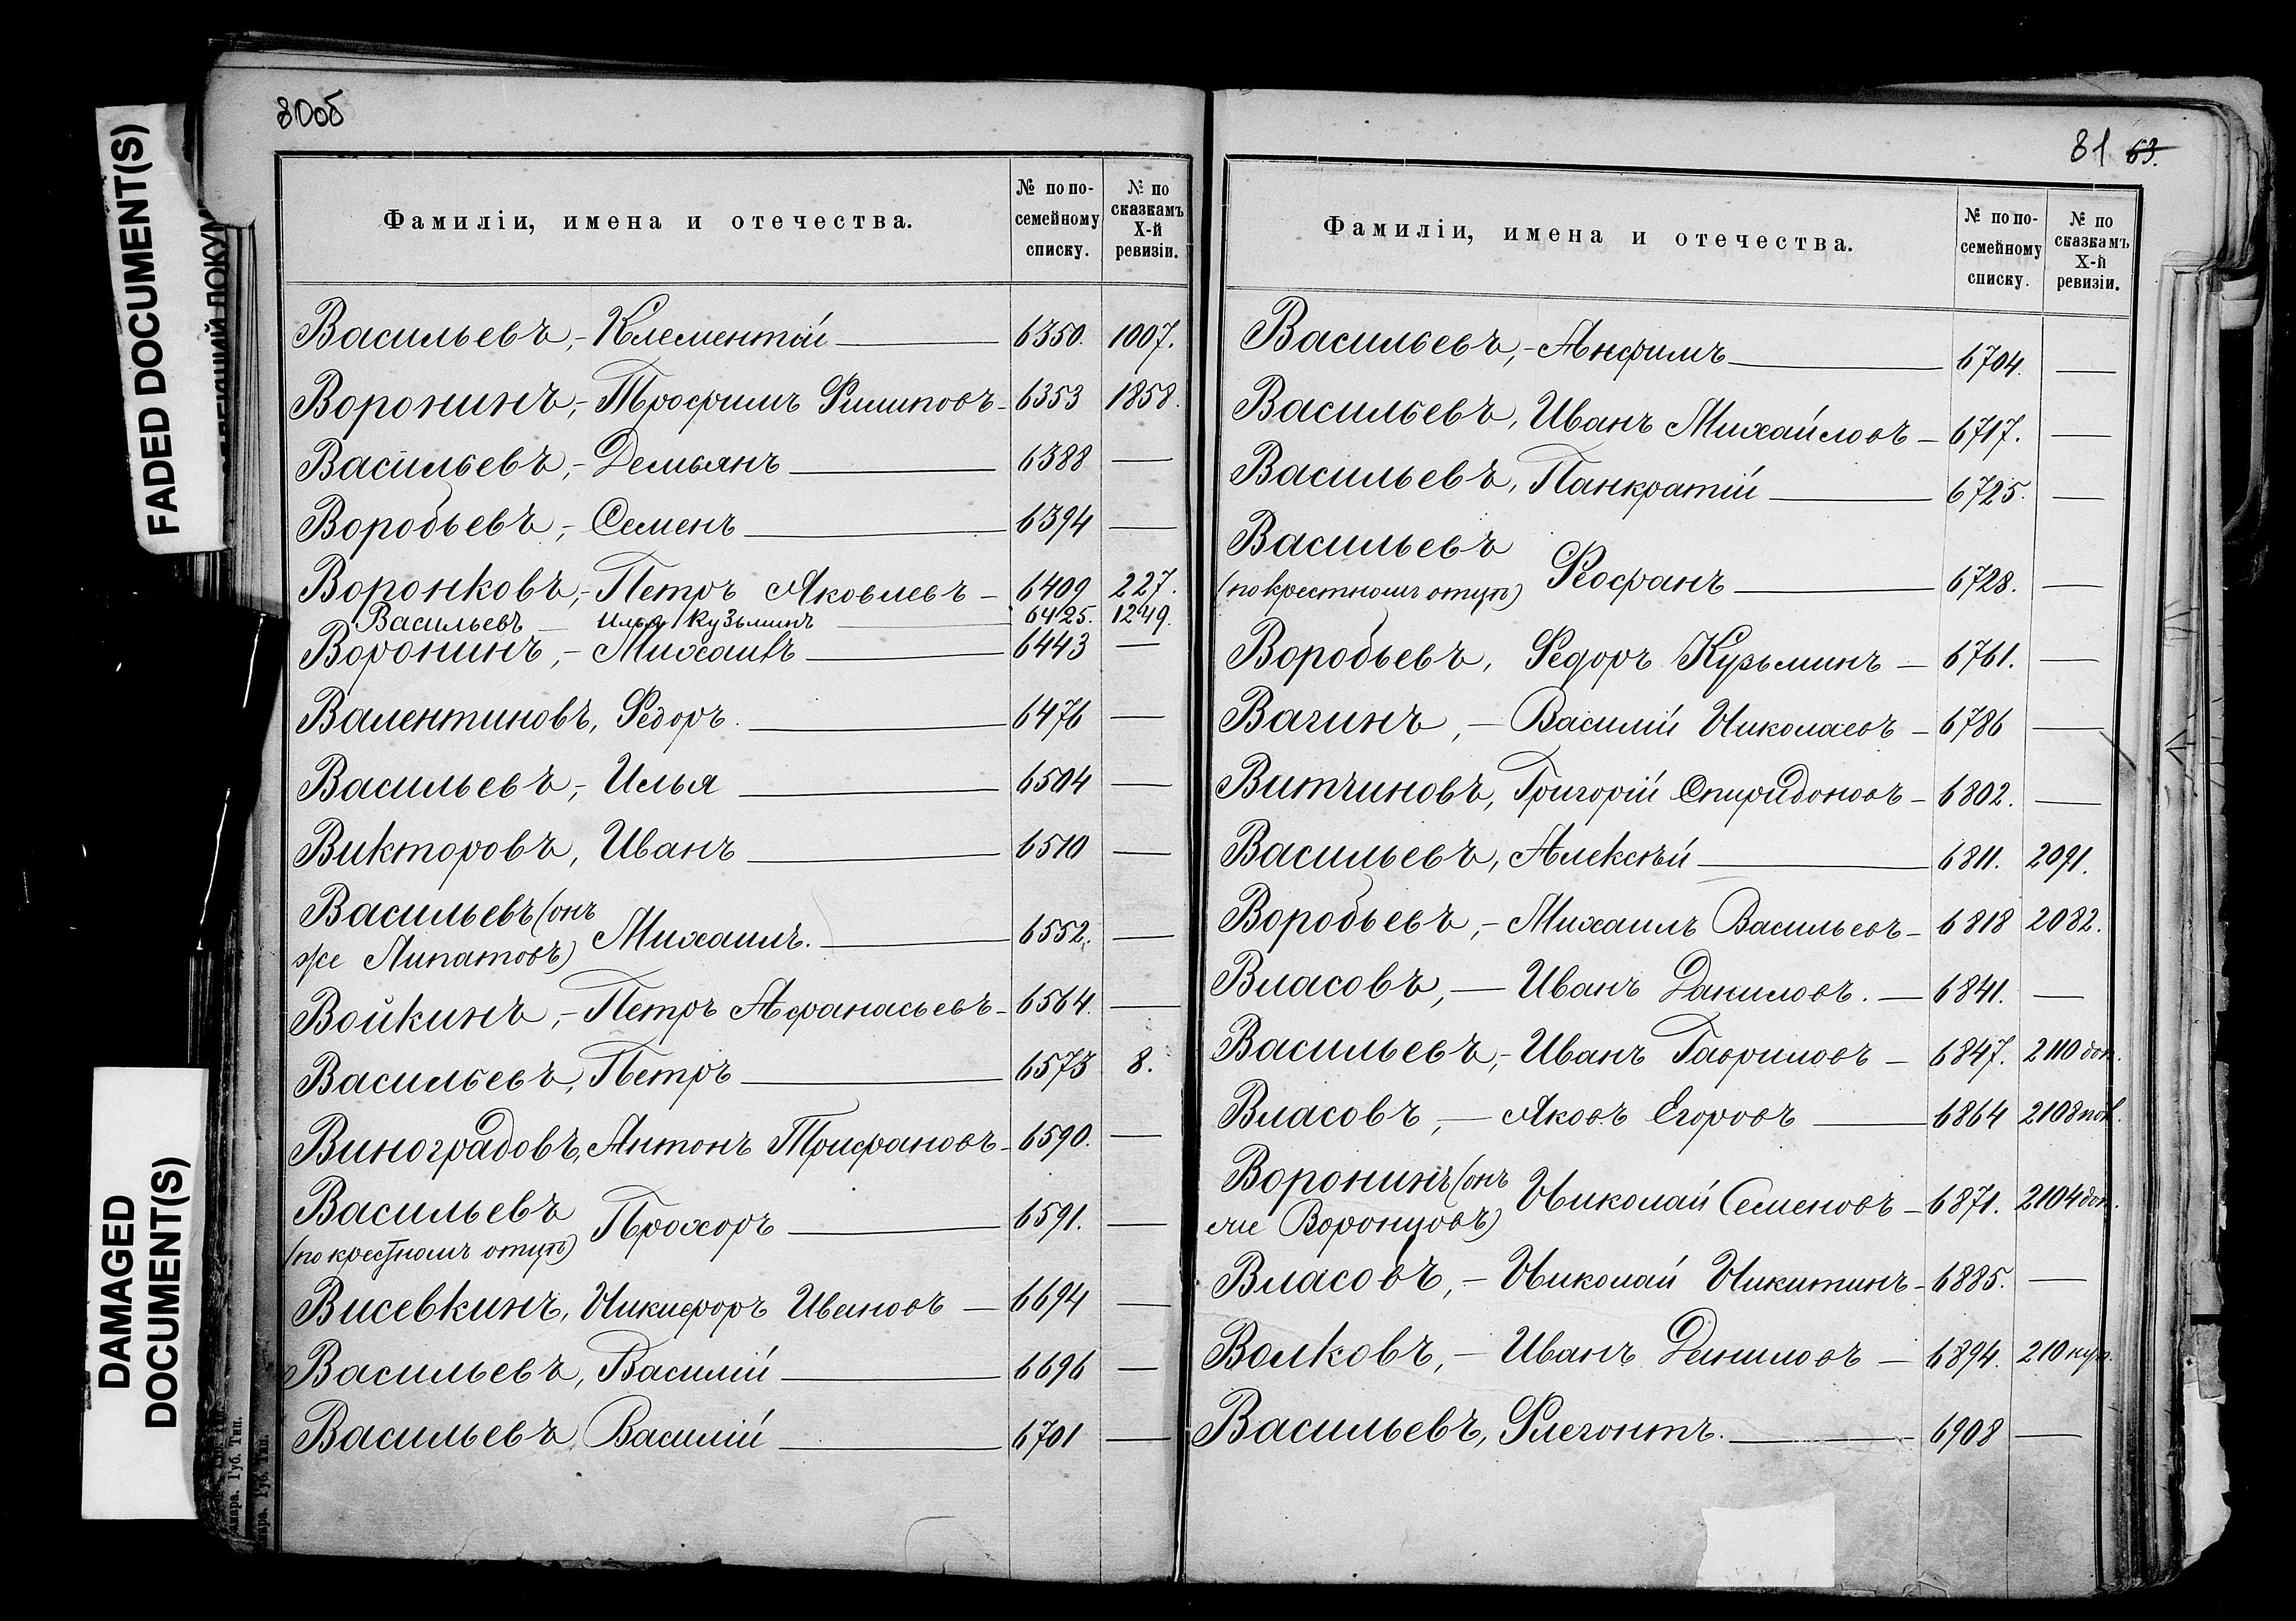 80об
Фамиліи, имена и отечества.
№ по по-
семейному
списку.
№ по
сказкамъ
X-й
ревизіи.
Васильевъ, - Клементій — 6350. 1007.
Воронинъ, - Трофимъ Филиповъ - 6353 1858.
Васильевъ, - Демьянъ — 6388 —
Воробьевъ, - Семенъ — 6394 —
Воронковъ, - Петръ Яковлевъ - 6409 227.
Васильевъ — Илья Кузьминъ — 6425. 1249.
Воронинъ, - Михаилъ — 6443 —
Валентиновъ, Федоръ. — 6476 —
Васильевъ, - Илья — 6504 —
Викторовъ, Иванъ — 6510 —
Васильевъ (онъ
же Липатовъ) Михаилъ. — 6552. —
Войкинъ, - Петръ Афанасьевъ - 6564. —
Васильевъ, Петръ — 6573 8.
Виноградовъ, Антонъ Трифановъ - 6590. —
Васильевъ
(по крестномъ отцѣ) Прохоръ — 6591. —
Висевкинъ, Никифоръ Ивановъ — 6694 —
Васильевъ, Василій — 6696 —
Васильевъ, Василій — 6701 —
81 63.
Фамиліи, имена и отечества.
№ по по-
семейному
списку.
№ по
сказкамъ
X-й
ревизіи.
Васильевъ, - Анфимъ — 6704. —
Васильевъ, Иванъ Михайловъ — 6717. —
Васильевъ, Панкратій — 6725. —
Васильевъ
(по крестномъ отцѣ) Феофанъ — 6728. —
Воробьевъ, Федоръ Кузьминъ — 6761. —
Вагинъ, — Василій Николаевъ — 6786 —
Витчиновъ, Григорій Спиридоновъ - 6802. —
Васильевъ, Алексѣй — 6811. 2091.
Воробьевъ, - Михаилъ Васильевъ - 6818 2082.
Власовъ, — Иванъ Даниловъ. — 6841. —
Васильевъ, - Иванъ Гавриловъ — 6847. 2110 доп.
Власовъ, — Яковъ Егоровъ — 6864 2108
Воронинъ (онъ
же Воронцовъ) Николай Семеновъ - 6871. 2104 доп.
Власовъ, - Николай Никитинъ - 6885. —
Волковъ, - Иванъ Даниловъ — 6894. 210 куп.
Васильевъ, Флегонтъ. — 6908 —
FADED DOCUMENT(S)
DAMAGED
DOCUMENT(S)